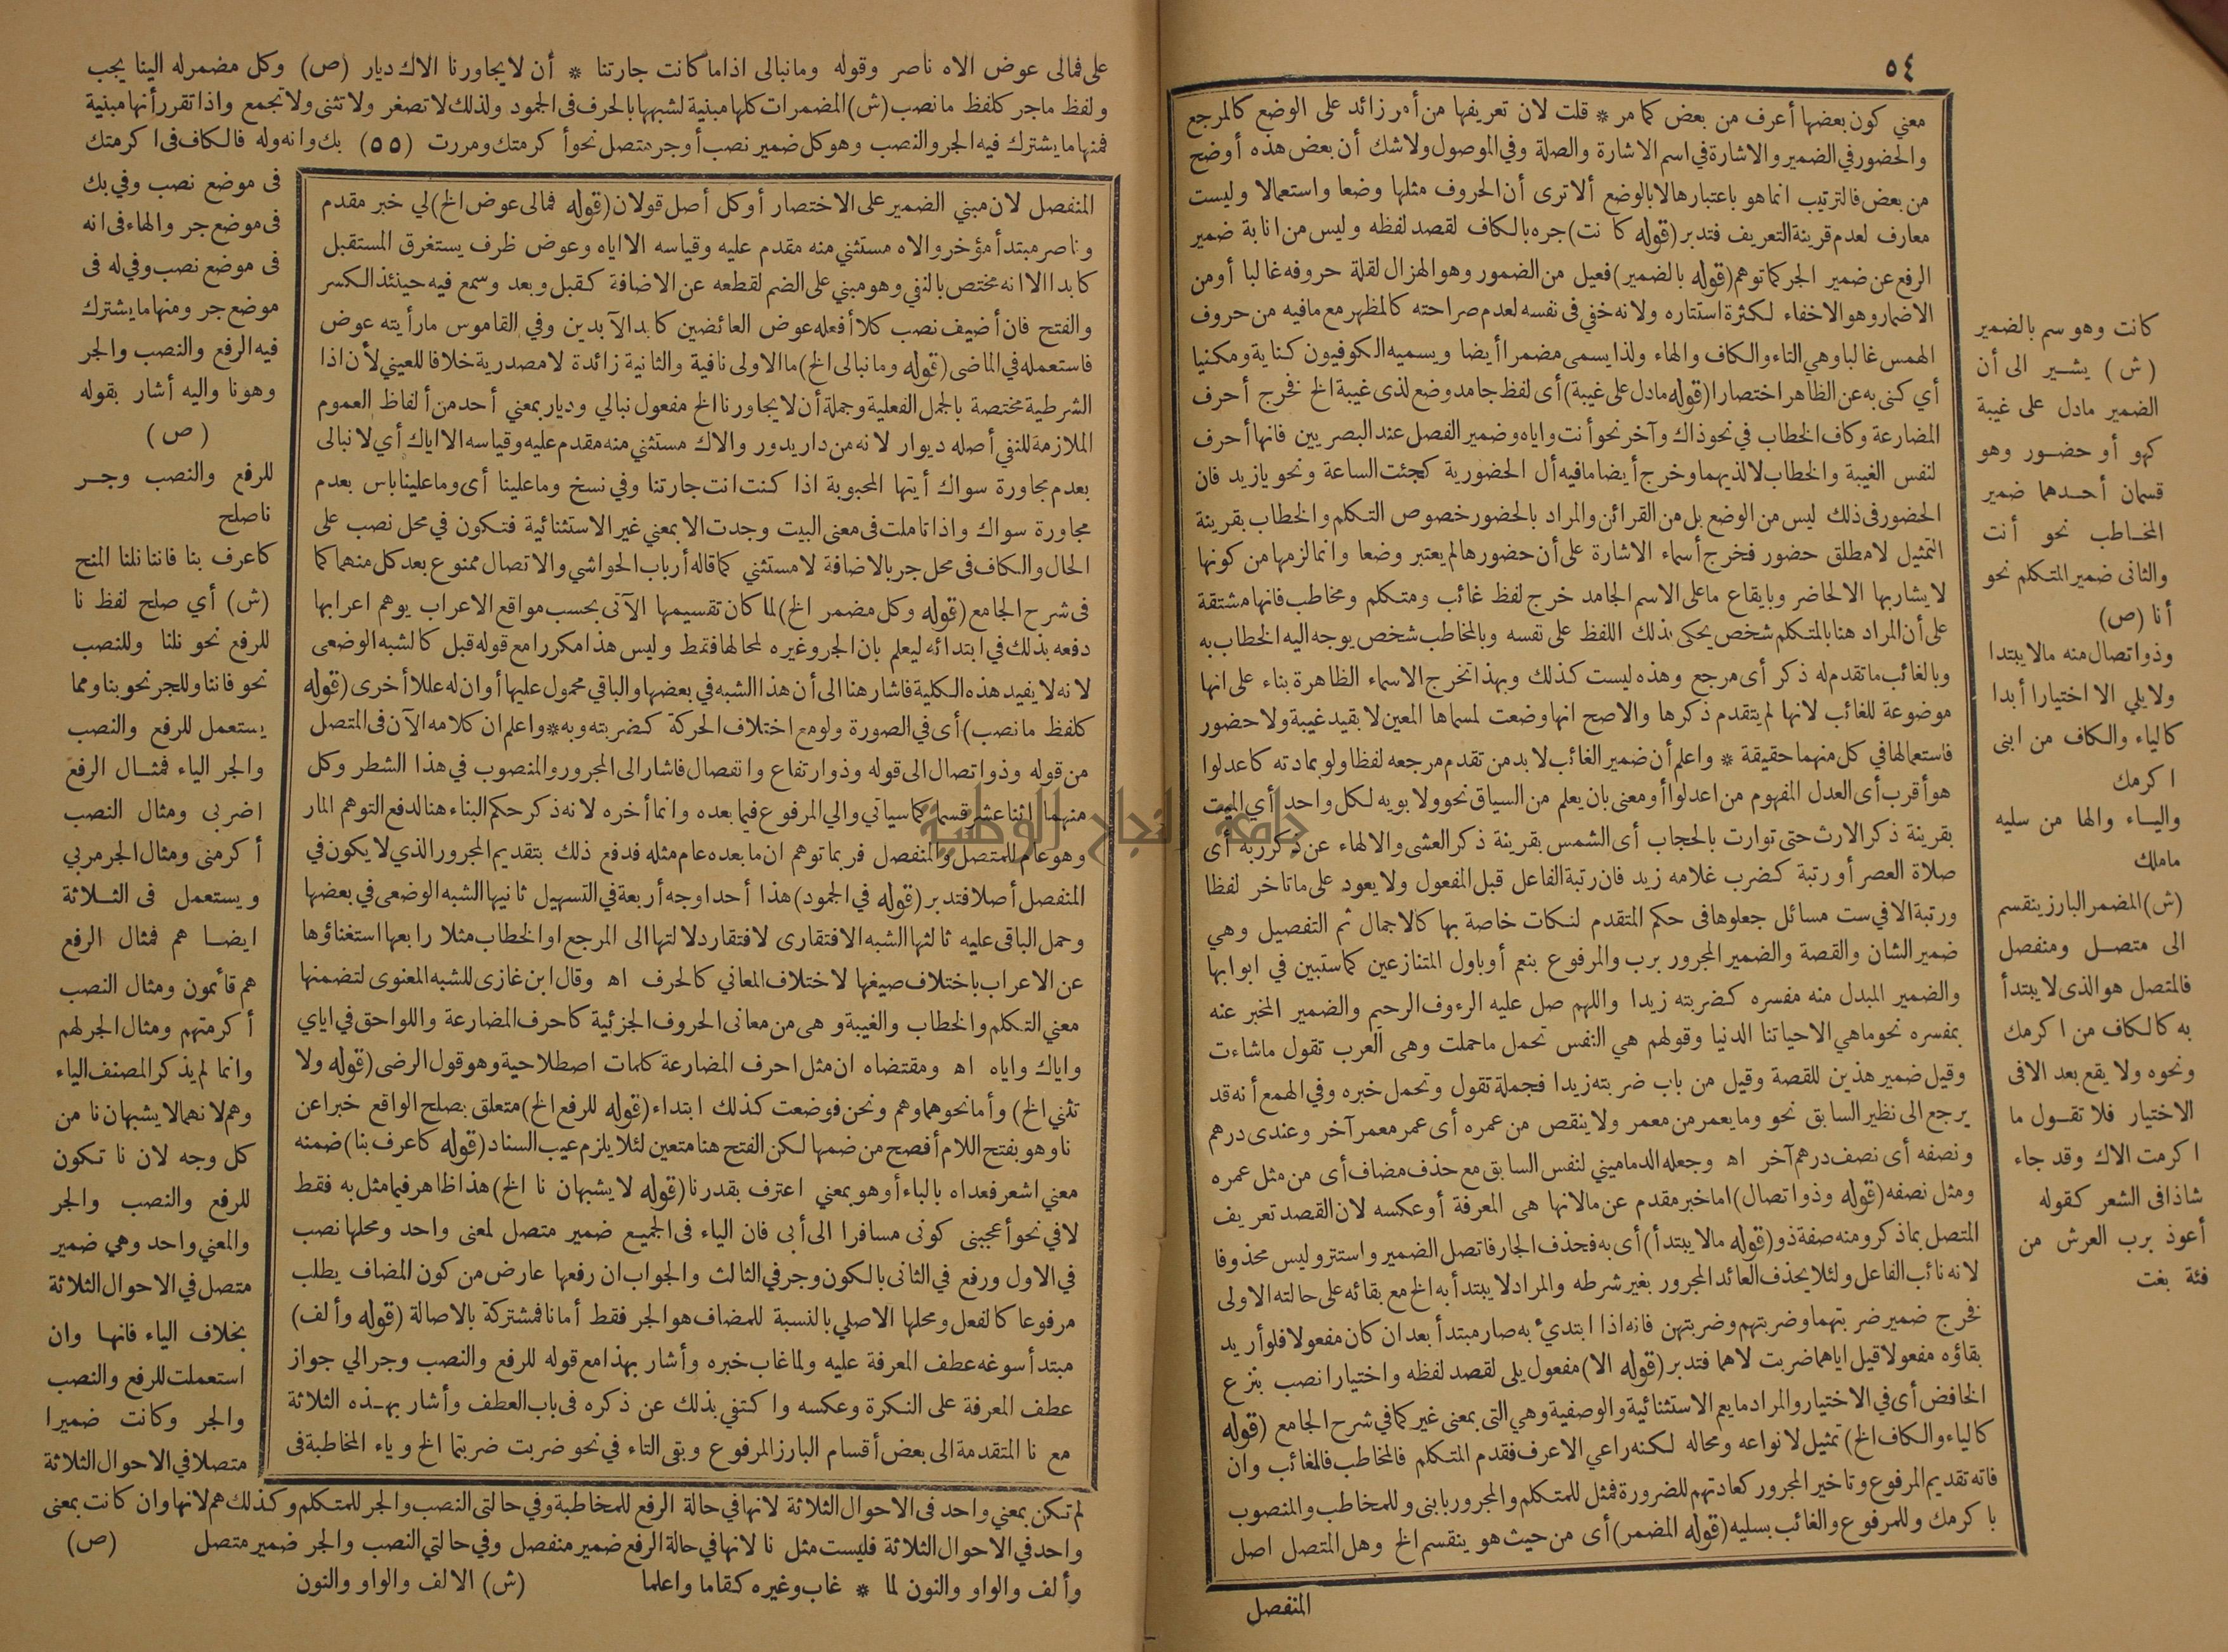 ٥٤
معني كون بعضها أعرف من بعض كما مر * قلت لان تعريفها من أمر زائد على الوضع كالمرجع
والحضور في الضمير والاشارة في اسم الاشارة والصلة وفي الموصول ولا شك أن بعض هذه أوضح
من بعض فالترتيب انما هو باعتبارها لا بالوضع ألا ترى أن الحروف مثلها وضعا واستعمالا وليست
معارف لعدم قرينة التعريف فتدبر (قوله كانت) جره بالكاف لقصد لفظه وليس من انابة ضمير
الرفع عن ضمير الجر كما توهم (قوله بالضمير) فعيل من الضمور وهو الهزال لقلة حروفه غالبا أو من
الاضمار وهو الاخفاء لكثرة استتاره ولانه خفي فى نفسه لعدم صراحته كالمظهر مع مافيه من حروف
الهمس غالبا وهي التاء والكاف والهاء ولذا يسمى مضمرا أيضا ويسميه الكوفيون كناية ومكنيا
أي كنى به عن الظاهر اختصارا (قوله مادل على غيبة) أى لفظ جامد وضع لذى غيبة الخ فخرج أحرف
المضارعة وكاف الخطاب في نحو ذاك وآخر نحو أنت واياه وضمير الفصل عند البصريين فانها أحرف
لنفس الغيبة والخطاب لا لذيهما وخرج أيضا مافيه أل الحضورية كجئت الساعة ونحو يازيد فان
الحضور فى ذلك ليس من الوضع بل من القرائن والمراد بالحضور خصوص التكلم والخطاب بقرينة
التمثيل لا مطلق حضور فخرج أسماء الاشارة على أن حضورها لم يعتبر وضعا وانما لزمها من كونها
لا يشار بها الا لحاضر وبايقاع ما على الاسم الجامد خرج لفظ غائب ومتكلم ومخاطب فانها مشتقة
على أن المراد هنا بالمتكلم شخص يحكى بذلك اللفظ على نفسه وبالمخاطب شخص يوجه اليه الخطاب به
وبالغائب ما تقدم له ذكر أى مرجع وهذه ليست كذلك وبهذا تخرج الاسماء الظاهرة بناء على انها
موضوعة للغائب لانها لم يتقدم ذكرها والاصح انها وضعت لمسماها المعين لا بقيد غيبة ولا حضور
فاستعمالها في كل منهما حقيقة * واعلم أن ضمير الغائب لا بد من تقدم مرجعه لفظا ولو بمادته كاعدلوا
هو أقرب أى العدل المفهوم من اعدلوا أو معنى بان يعلم من السياق نحو ولابويه لكل واحد أي الميت
بقرينة ذكر الارث حتى توارت بالحجاب أى الشمس بقرينة ذكر العشى والالهاء عن ذكر ربه أى
صلاة العصر أو رتبة كضرب غلامه زيد فان رتبة الفاعل قبل المفعول ولا يعود على ما تاخر لفظا
ورتبة الا في ست مسائل جعلوها فى حكم المتقدم لنكات خاصة بها كالاجمال ثم التفصيل وهي
ضمير الشان والقصة والضمير المجرور برب والمرفوع بنعم أو باول المتنازعين كما ستبين في ابوابها
والضمير المبدل منه مفسره كضربته زيدا واللهم صل عليه الرءوف الرحيم والضمير المخبر عنه
بمفسره نحو ماهي الا حياتنا الدنيا وقولهم هي النفس تحمل ما حملت وهى العرب تقول ما شاءت
وقيل ضمير هذين للقصة وقيل من باب ضربته زيدا فجملة تقول وتحمل خبره وفي الهمع أنه قد
يرجع الى نظير السابق نحو وما يعمر من معمر ولا ينقص من عمره أى عمر معمر آخر وعندى درهم
ونصفه أى نصف درهم آخر اه وجعله الدماميني لنفس السابق مع حذف مضاف أى من مثل عمره
ومثل نصفه (قوله وذو اتصال) اما خبر مقدم عن ما لانها هى المعرفة أو عكسه لان القصد تعريف
المتصل بما ذكر ومنه صفة ذو (قوله مالا يبتدأ) أى به فحذف الجار فاتصل الضمير واستتر وليس محذوفا
لانه نائب الفاعل ولئلا يحذف العائد المجرور بغير شرطه والمراد لا يبتدأ به الخ مع بقائه على حالته الاولى
فخرج ضمير ضربتهما وضربتهم وضربتهن فانه اذا ابتديء به صار مبتدأ بعد ان كان مفعولا فلو أريد
بقاؤه مفعولا قيل اياهما ضربت لاهما فتدبر (قوله الا) مفعول يلى لقصد لفظه واختيارا نصب بنزع
الخافض أى في الاختيار والمراد ما يعم الاستثنائية والوصفية وهي التى بمعنى غير كما في شرح الجامع (قوله
كالياء والكاف الخ) تمثيل لانواعه ومحاله لكنه راعي الاعرف فقدم المتكلم فالمخاطب فالغائب وان
فاته تقديم المرفوع وتاخير المجرور كعادتهم للضرورة فمثل للمتكلم والمجرور بابنى وللمخاطب والمنصوب
باكرمك وللمرفوع والغائب بسليه (قوله المضمر) أى من حيث هو ينقسم الخ وهل المتصل اصل
المنفصل
كانت وهو سم بالضمير
(ش) يشير الى أن
الضمير مادل على غيبة
كهو أو حضور وهو
قسمان أحدهما ضمير
المخاطب نحو أنت
والثانى ضمير المتكلم نحو
أنا (ص)
وذو اتصال منه مالا يبتدا
ولا يلي الا اختيارا أبدا
كالياء والكاف من ابنى
اكرمك
والياء والها من سليه
ماملك
(ش) المضمر البارز ينقسم
الى متصل ومنفصل
فالمتصل هو الذى لا يبتدأ
به كالكاف من اكرمك
ونحوه ولا يقع بعد الا فى
الاختيار فلا تقول ما
اكرمت الاك وقد جاء
شاذا فى الشعر كقوله
أعوذ برب العرش من
فئة بغت
على فمالى عوض الاه ناصر وقوله ومانبالى اذا ما كانت جارتنا * أن لا يجاورنا الاك ديار (ص) وكل مضمر له البنا يجب
ولفظ ماجر كلفظ مانصب (ش) المضمرات كلها مبنية لشبهها بالحرف فى الجمود ولذلك لا تصغر ولا تثنى ولا تجمع واذا تقرر أنها مبنية
فمنها ما يشترك فيه الجر والنصب وهو كل ضمير نصب أو جر متصل نحو أكرمتك ومررت (٥٥) بك وانه وله فالكاف فى اكرمتك
فى موضع نصب وفي بك
فى موضع جر والهاء فى انه
فى موضع نصب وفي له فى
موضع جر ومنها ما يشترك
فيه الرفع والنصب والجر
وهو نا واليه أشار بقوله
(ص)
للرفع والنصب وجر
ناصلح
كاعرف بنا فاننا نلنا المنح
(ش) أي صلح لفظ نا
للرفع نحو نلنا وللنصب
نحو فاننا وللجر نحو بنا ومما
يستعمل للرفع والنصب
والجر الياء فمثال الرفع
اضربى ومثال النصب
أكرمنى ومثال الجر مر بي
ويستعمل فى الثلاثة
ايضا هم فمثال الرفع
هم قائمون ومثال النصب
أكرمتهم ومثال الجر لهم
وانما لم يذكر المصنف الياء
وهم لانهما لا يشبهان نا من
كل وجه لان نا تكون
للرفع والنصب والجر
والمعني واحد وهي ضمير
متصل في الاحوال الثلاثة
بخلاف الياء فانها وان
استعملت للرفع والنصب
والجر وكانت ضميرا
متصلا في الاحوال الثلاثة
المنفصل لان مبني الضمير على الاختصار أو كل أصل قولان (قوله فمالى عوض الخ) لي خبر مقدم
وناصر مبتدأ مؤخر والاه مستثني منه مقدم عليه وقياسه الا اياه وعوض ظرف يستغرق المستقبل
كابدا الا انه مختص بالنفي وهو مبني على الضم لقطعه عن الاضافة كقبل وبعد وسمع فيه حينئذ الكسر
والفتح فان أضيف نصب كلا أفعله عوض العائضين كابد الآبدين وفي القاموس ما رأيته عوض
فاستعمله في الماضى (قوله ومانبالى الخ) ما الاولى نافية والثانية زائدة لا مصدرية خلافا للعيني لأن اذا
الشرطية مختصة بالجمل الفعلية وجملة أن لا يجاورنا الخ مفعول نبالي وديار بمعني أحد من ألفاظ العموم
الملازمة للنفي أصله ديوار لانه من دار يدور والاك مستثني منه مقدم عليه وقياسه الا اياك أي لا نبالى
بعدم مجاورة سواك أيتها المحبوبة اذا كنت انت جارتنا وفي نسخ وماعلينا أى وماعلينا باس بعدم
مجاورة سواك واذا تاملت فى معنى البيت وجدت الا بمعني غير الاستثنائية فتكون في محل نصب على
الحال والكاف فى محل جر بالاضافة لا مستثني كما قاله أرباب الحواشي والاتصال ممنوع بعد كل منهما كما
فى شرح الجامع (قوله وكل مضمر الخ) لما كان تقسيمها الآتى بحسب مواقع الاعراب يوهم اعرابها
دفعه بذلك في ابتدائه ليعلم بان الجر وغيره لمحالها فقط وليس هذا مكررا مع قوله قبل كالشبه الوضعى
لانه لا يفيد هذه الكلية فاشار هنا الى أن هذا الشبه في بعضها والباقي محمول عليها أو ان له عللا أخرى (قوله
كلفظ مانصب) أى في الصورة ولو مع اختلاف الحركة كضربته وبه * واعلم ان كلامه الآن فى المتصل
من قوله وذو اتصال الى قوله وذو ارتفاع وانفصال فاشار الى المجرور والمنصوب في هذا الشطر وكل
منهما اثنا عشر قسما كما سيأتي والي المرفوع فيما بعده وانما أخره لانه ذكر حكم البناء هنا لدفع التوهم المار
وهو عام للمتصل والمنفصل فربما توهم ان ما بعده عام مثله فدفع ذلك بتقديم المجرور الذي لا يكون في
المنفصل أصلا فتدبر (قوله في الجمود) هذا أحد اوجه أربعة في التسهيل ثانيها الشبه الوضعى في بعضها
وحمل الباقى عليه ثالثها الشبه الافتقارى لافتقار دلالتها الى المرجع او الخطاب مثلا رابعها استغناؤها
عن الاعراب باختلاف صيغها لاختلاف المعاني كالحرف اه وقال ابن غازى للشبه المعنوى لتضمنها
معني التكلم والخطاب والغيبة وهى من معانى الحروف الجزئية كاحرف المضارعة واللواحق في اياي
واياك واياه اه ومقتضاه ان مثل احرف المضارعة كلمات اصطلاحية وهو قول الرضى (قوله ولا
تثني الخ) وأما نحو هما وهم ونحن فوضعت كذلك ابتداء (قوله للرفع الخ) متعلق بصلح الواقع خبرا عن
نا وهو بفتح اللام أفصح من ضمها لكن الفتح هنا متعين لئلا يلزم عيب السناد (قوله كاعرف بنا) ضمنه
معني اشعر فعداه بالباء أو هو بمعني اعترف بقدرنا (قوله لا يشبهان نا الخ) هذا ظاهر فيما مثل به فقط
لا في نحو أعجبنى كونى مسافرا الى أبى فان الياء فى الجميع ضمير متصل لمعنى واحد ومحلها نصب
في الاول ورفع في الثانى بالكون وجر في الثالث والجواب ان رفعها عارض من كون المضاف يطلب
مرفوعا كالفعل ومحلها الاصلي بالنسبة للمضاف هو الجر فقط أما نا فمشتركة بالاصالة (قوله وألف)
مبتدأ سوغه عطف المعرفة عليه ولما غاب خبره وأشار بهذا مع قوله للرفع والنصب وجر الي جواز
عطف المعرفة على النكرة وعكسه واكتفي بذلك عن ذكره فى باب العطف وأشار بهذه الثلاثة
مع نا المتقدمة الى بعض أقسام البارز المرفوع وبقى التاء في نحو ضربت ضربتما الخ وياء المخاطبة فى
لم تكن بمعني واحد فى الاحوال الثلاثة لانها في حالة الرفع للمخاطبة وفي حالتى النصب والجر للمتكلم وكذلك هم لانها وان كانت بمعنى
واحد في الاحوال الثلاثة فليست مثل نا لانها في حالة الرفع ضمير منفصل وفي حالتي النصب والجر ضمير متصل (ص)
وألف والواو والنون لما * غاب وغيره كقاما واعلما (ش) الالف والواو والنون
جامعة النجاح الوطنية